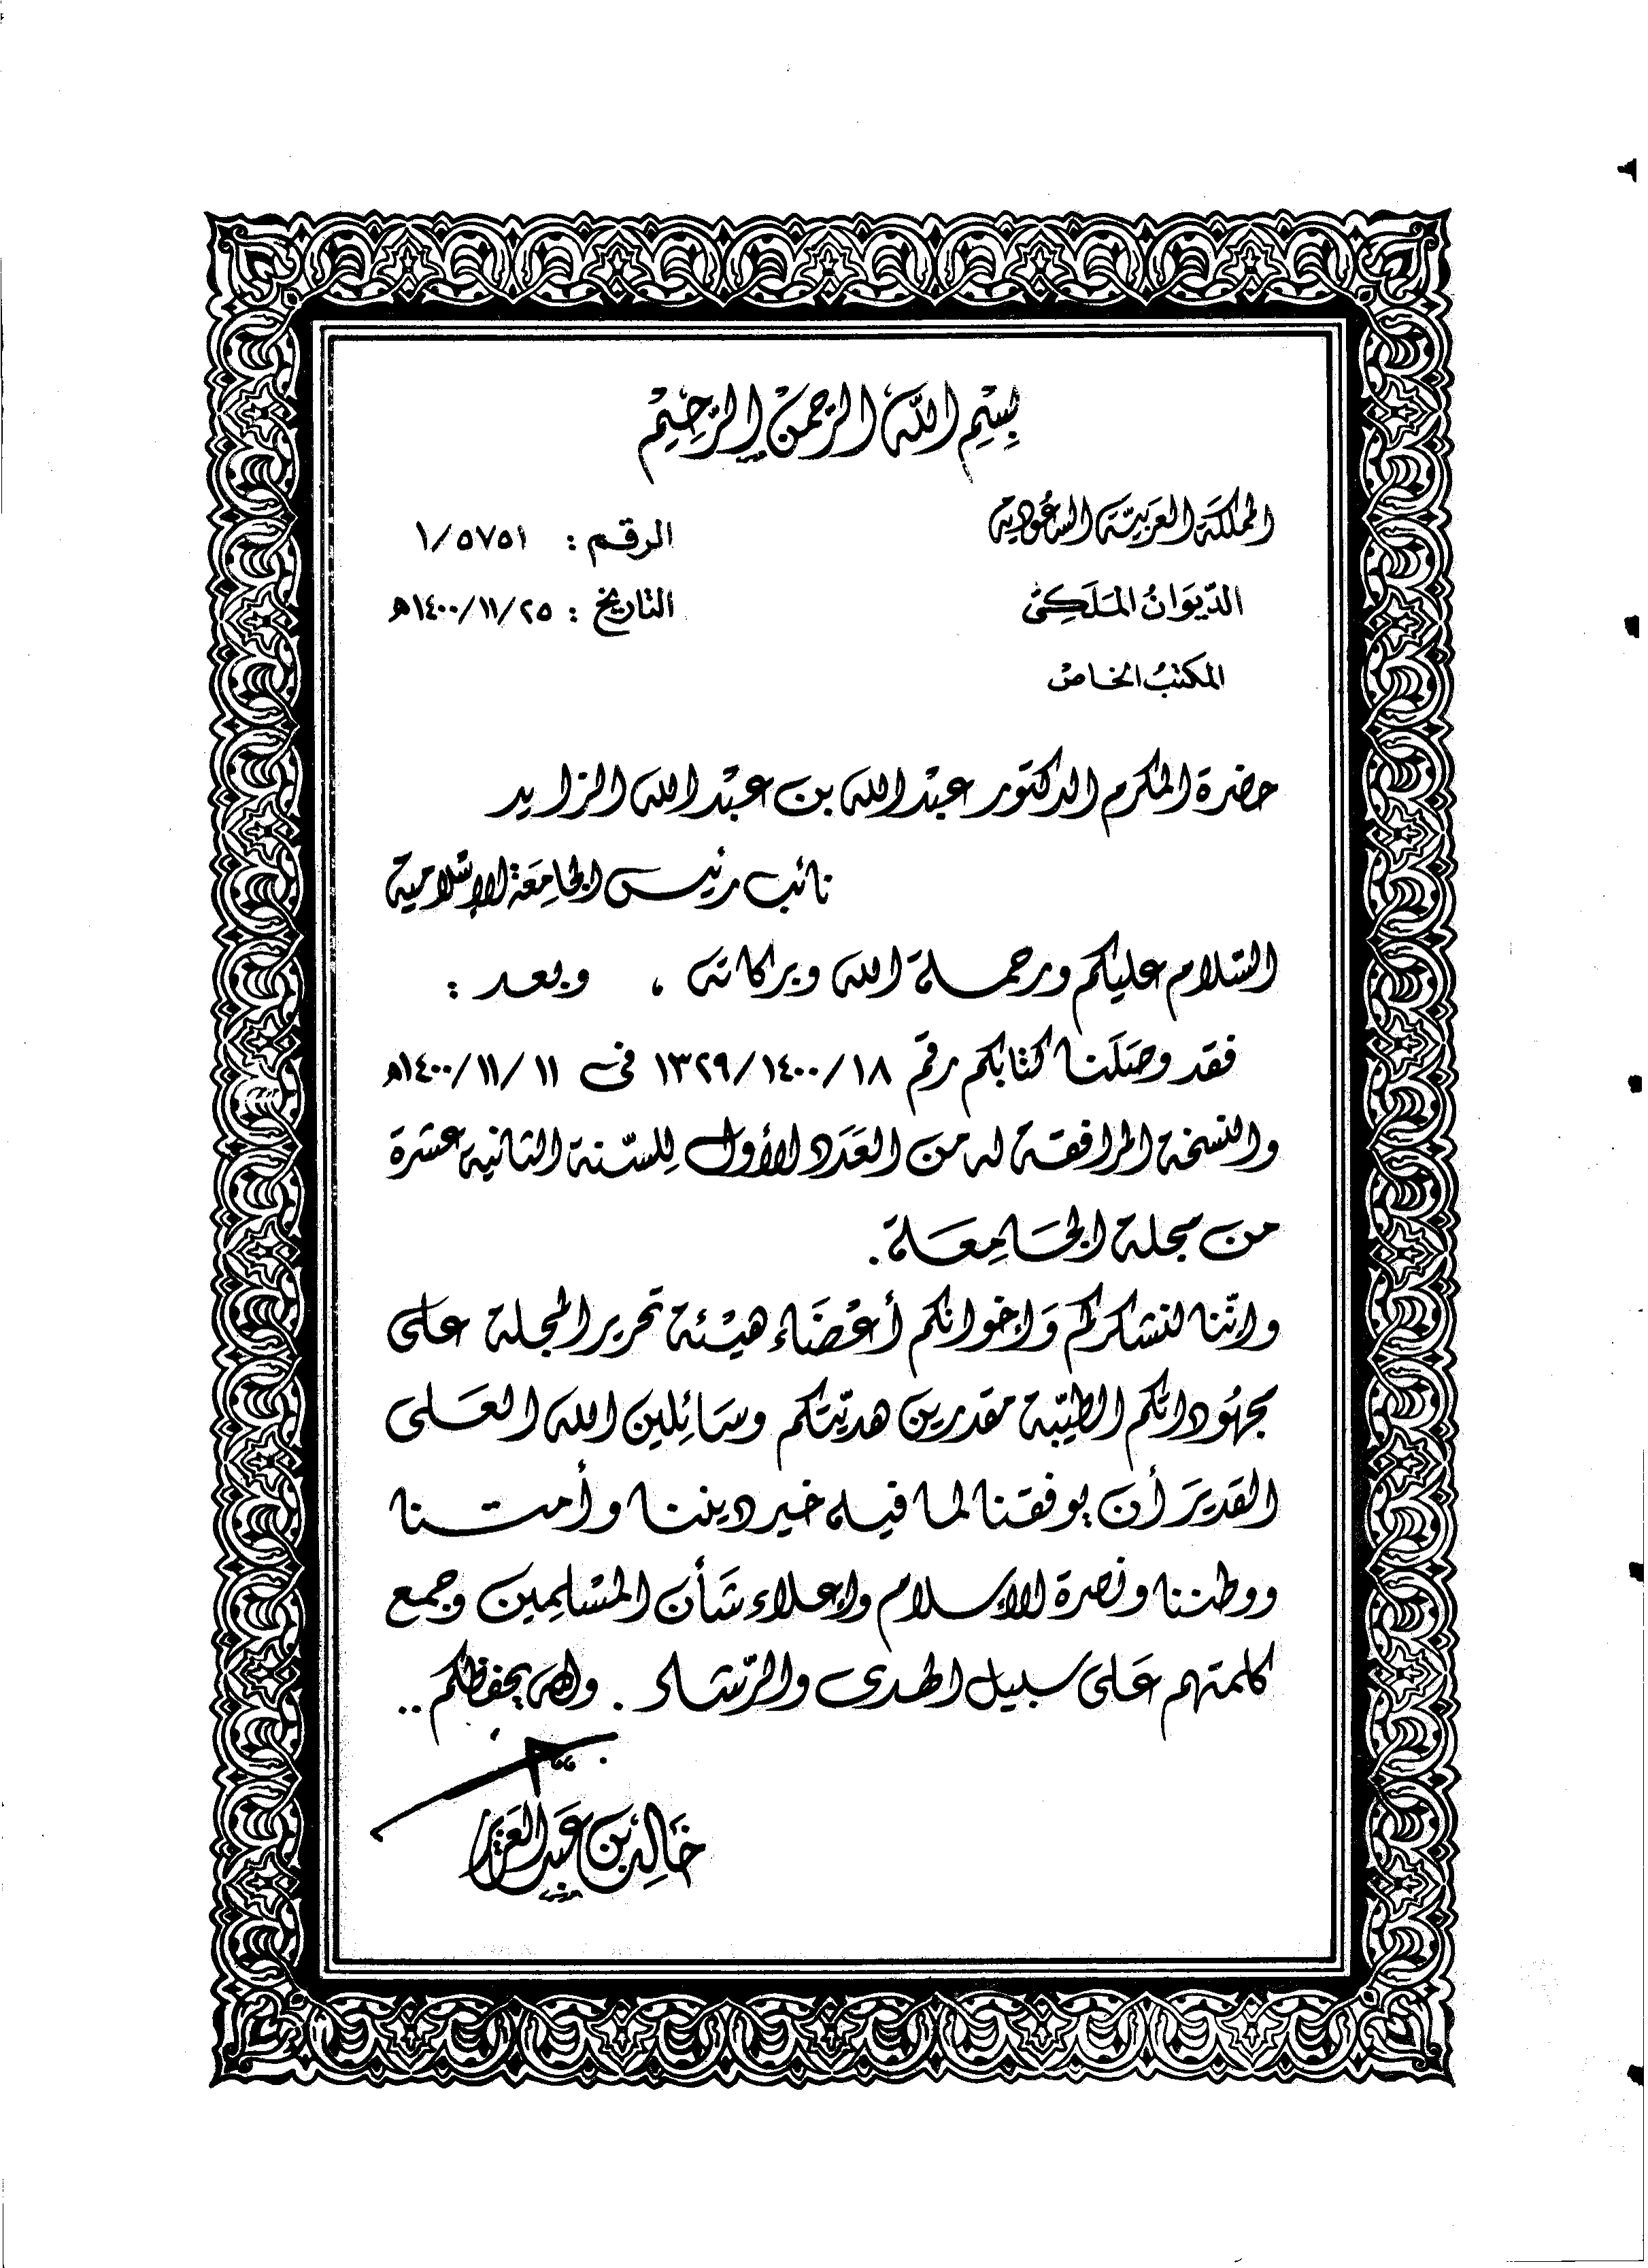 بِسْمِ اللّٰهِ الرَّحْمٰنِ الرَّحِيْمِ
المملكة العربيّة السعُوديّة
الرقم : ١/٥٧٥١
الدّيوَانُ الملَكِي
التاريخ : ١٤٠٠/١١/٢٥هـ
المكتبُ الخاص
حضرة المكرم الدكتور عبْد الله بن عبْد الله الزايد
نائب رئيس الجامعَة الإسْلامية
السّلام عليكم ورحمة الله وبركاته ، وبعد :
فقد وصَلَنا كتابكم رقم ١٣٢٩/١٤٠٠/١٨ فى ١٤٠٠/١١/١١هـ
والنسخة المرافقة له من العَدَد الأول لِلسّنة الثانية عشرة
من مجلة الجَامِعَة .
وإنّنا لنشكركم وَإخوانكم أعْضَاء هيْئة تحرير المجلة على
مجهُوداتكم الطيّبة مقدرين هديّتكم وسَائِلين الله العَلى
القديرَ أن يوفقنا لما فيه خير ديننا وأمتنا
ووطننا ونصرة الإسلام وإعلاء شَأن المسْلِمِين وجمع
كلمتهم عَلى سبيل الهدى والرّشاد . والله يحفظكم ..
خَالِد بن عَبد العَزيز